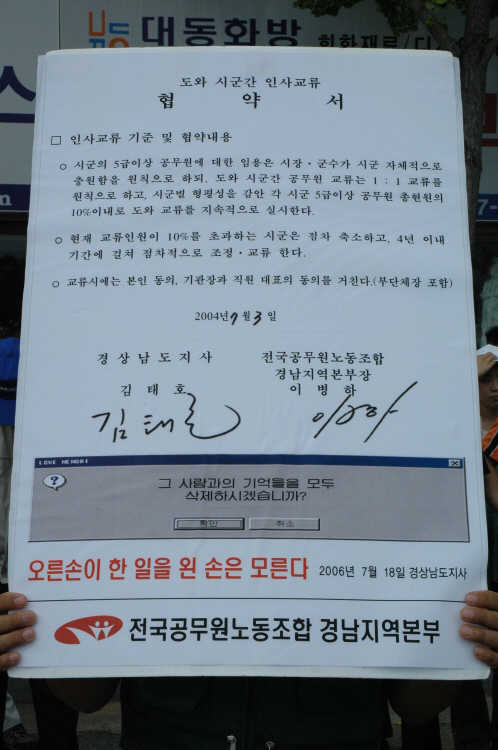 대동화방
도와 시군간 인사교류
협 약 서
□ 인사교류 기준 및 협약내용
○ 시군의 5급이상 공무원에 대한 임용은 시장·군수가 시군 자체적으로
충원함을 원칙으로 하되, 도와 시군간 공무원 교류는 1:1 교류를
원칙으로 하고, 시군별 형평성을 감안 각 시군 5급이상 공무원 총현원의
10%이내로 도와 교류를 지속적으로 실시한다.
○ 현재 교류인원이 10%를 초과하는 시군은 점차 축소하고, 4년 이내
기간에 걸쳐 점차적으로 조정·교류 한다.
○ 교류시에는 본인 동의, 기관장과 직원 대표의 동의를 거친다.(부단체장 포함)
2004년 7월 3일
경상남도지사 전국공무원노동조합
경남지역본부장
김태호 이병하
김태호
LOVE MEMORY
그 사람과의 기억들을 모두
삭제하시겠습니까?
확인 취소
오른손이 한 일을 왼 손은 모른다 2006년 7월 18일 경상남도지사
전국공무원노동조합 경남지역본부